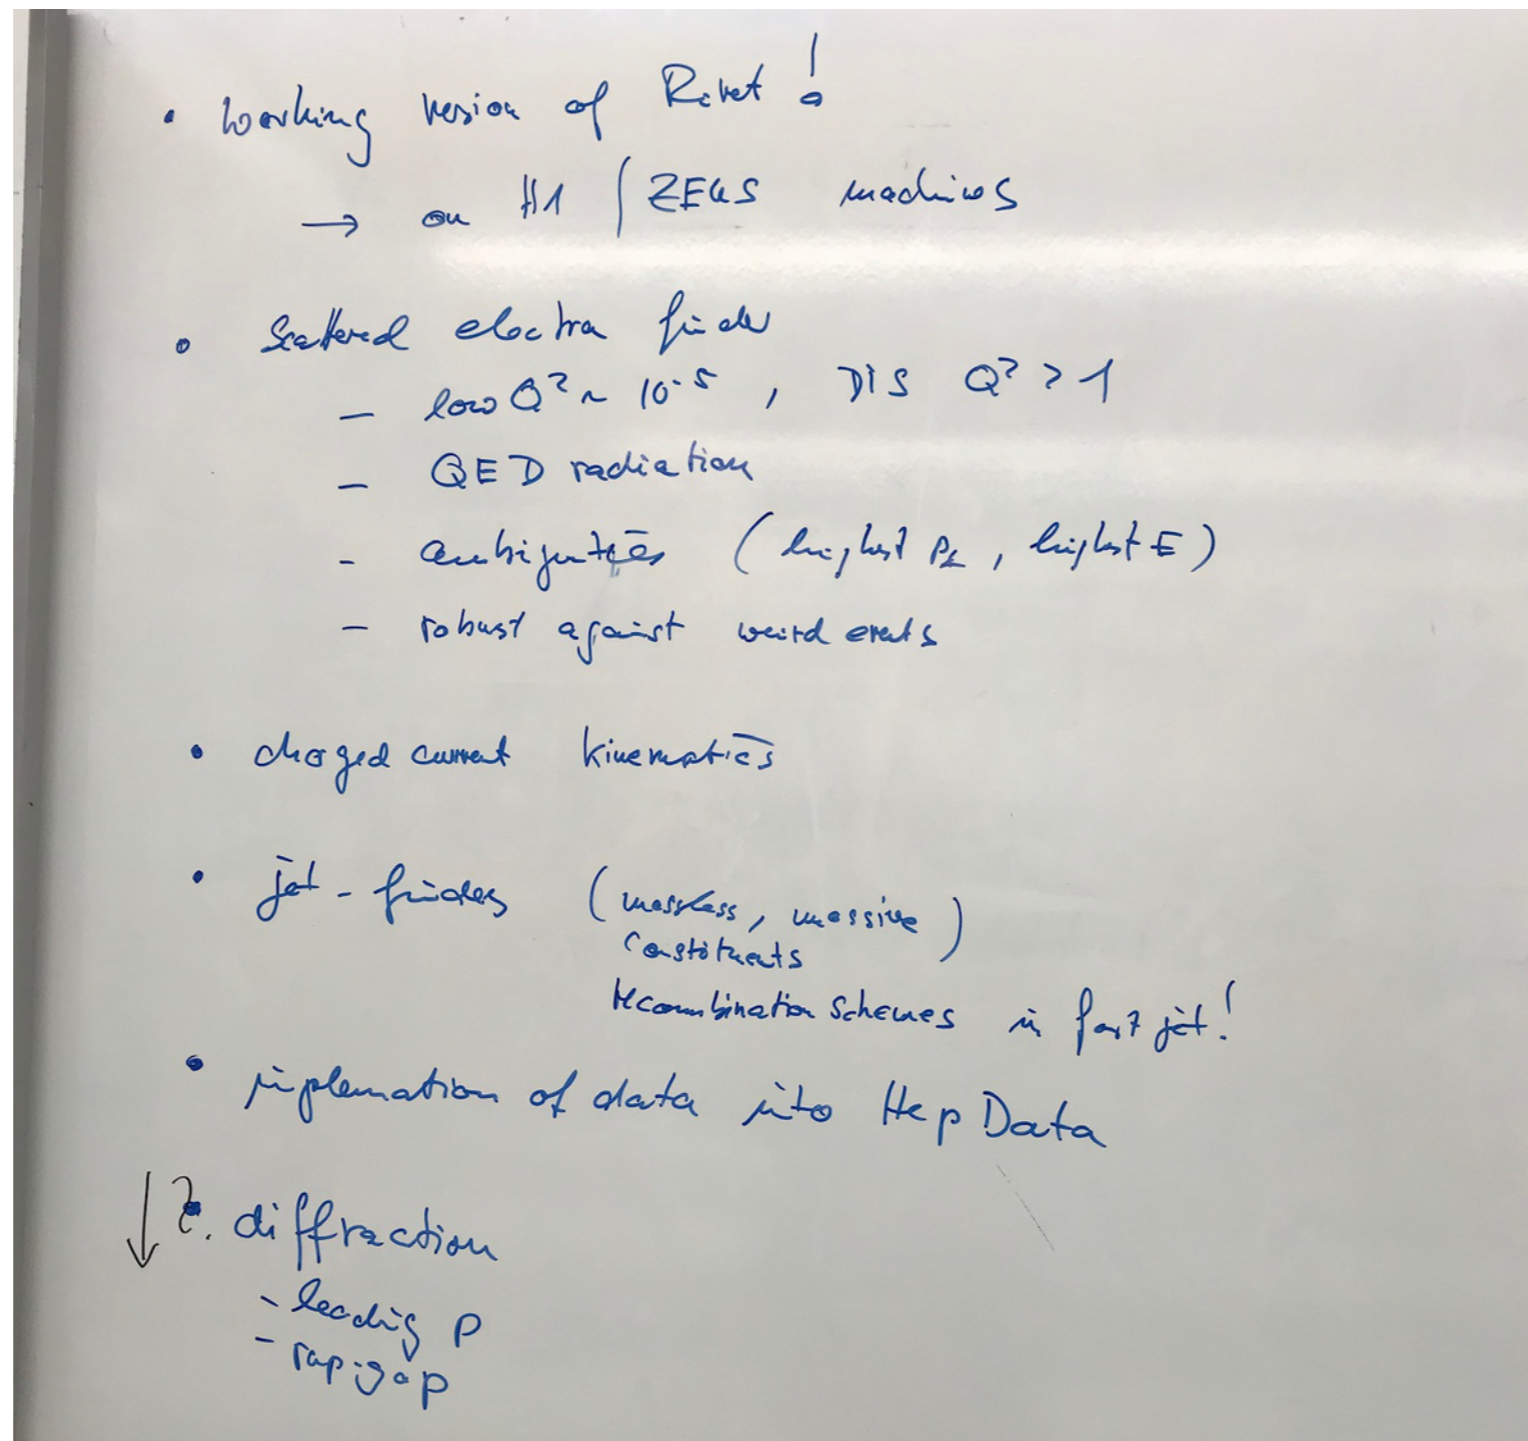 • working version of Rivet !
→ on H1 / ZEUS machines
• Scattered electron finder
– low Q² ~ 10⁻⁵ , DIS Q² > 1
– QED radiation
– ambiguities ( highest Pt , highest E )
– robust against weird events
• charged current kinematics
• jet - finders ( massless, massive )
constituents
recombination schemes in fastjet !
• implemation of data into HepData
↓ ?. diffraction
- leading p
- rap.gap